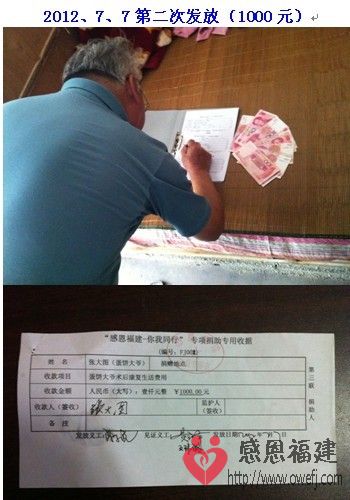 2012、7、7第二次发放（1000元）
“感恩福建-你我同行” 专项捐助专用收据
姓 名 张大图（蛋饼大爷） 捐赠地点
收款项目 蛋饼大爷术后康复生活费用
收款金额 人民币（大写）：壹仟元整 ￥1000.00元
收款人（签收） 张大图 监护人（签收）
备 注
第三联 捐助人
发放义工： 见证义工： 发放日期：
感恩福建
www.owefj.com